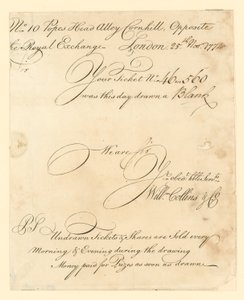 No 10 Popes Head Alley Cornhill, Opposite
Royal Exchange London 25th Novr 1774
Your Ticket No 46.560
was this day drawn a Blank
We are Sr
Yr obedt Hble Servts
Willm Collins & Co
PS Undrawn Tickets & Shares are Sold every
Morning & Evening during the drawing
Money paid for Prizes as soon as drawn